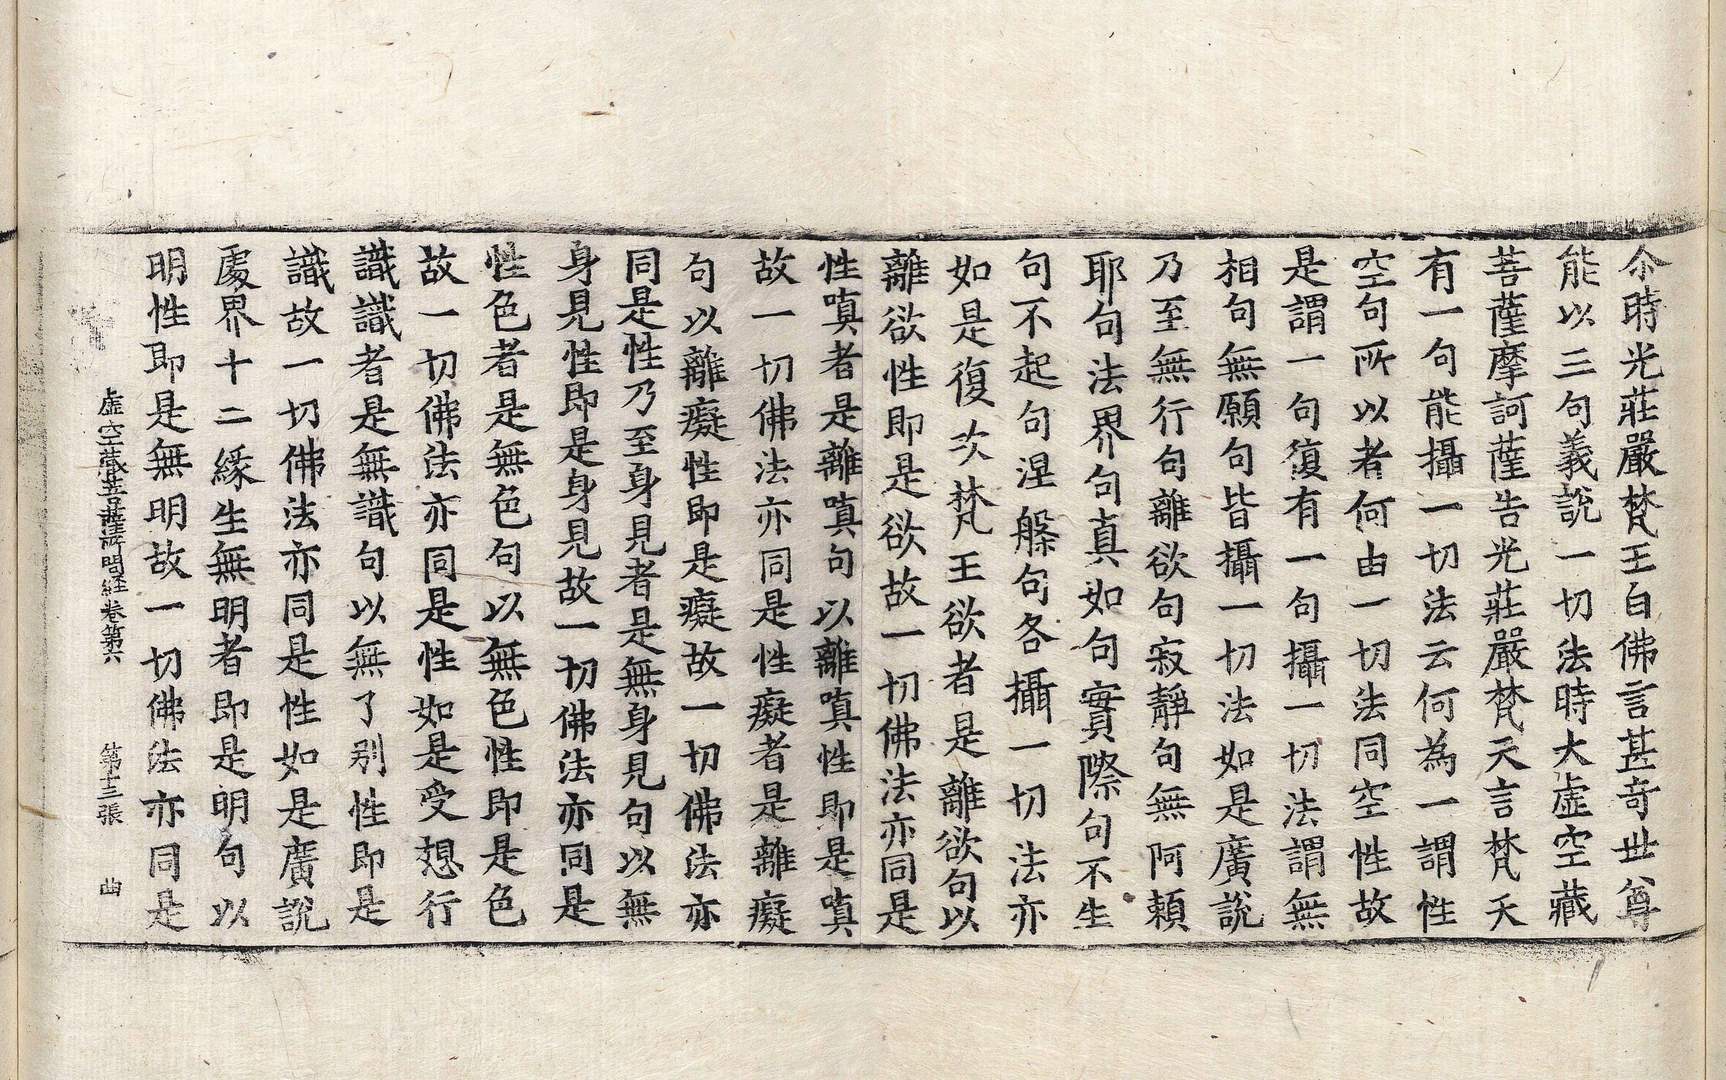 尒時光莊嚴梵王白佛言甚奇世尊
能以三句義說一切法時大虛空藏
菩薩摩訶薩告光莊嚴梵天言梵天
有一句能攝一切法云何為一謂性
空句所以者何由一切法同空性故
是謂一句復有一句攝一切法謂無
相句無願句皆攝一切法如是廣說
乃至無行句離欲句寂靜句無阿賴
耶句法界句真如句實際句不生
句不起句涅槃句各攝一切法亦
如是復次梵王欲者是離欲句以
離欲性即是欲故一切佛法亦同是
性嗔者是離嗔句以離嗔性即是嗔
故一切佛法亦同是性癡者是離癡
句以離癡性即是癡故一切佛法亦
同是性乃至身見者是無身見句以無
身見性即是身見故一切佛法亦同是
性色者是無色句以無色性即是色
故一切佛法亦同是性如是受想行
識識者是無識句以無了別性即是
識故一切佛法亦同是性如是廣說
處界十二緣生無明者即是明句以
明性即是無明故一切佛法亦同是
虛空藏菩薩所問経卷第六 第十三張 凷